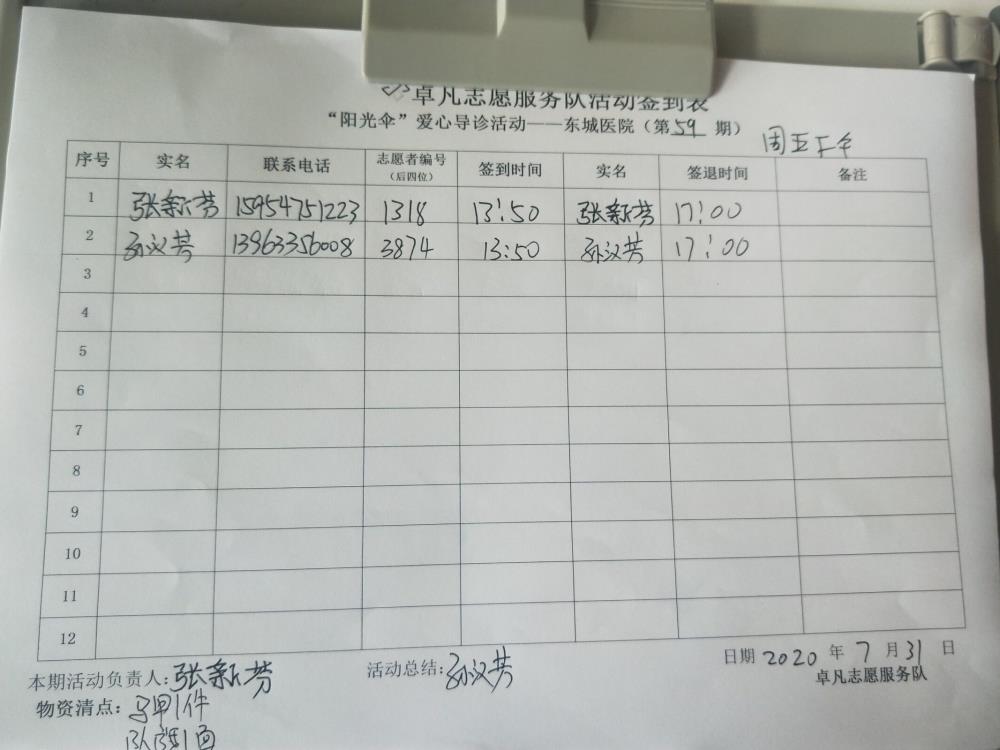 卓凡志愿服务队活动签到表
“阳光伞”爱心导诊活动——东城医院（第 59 期）
周五下午
序号 实名 联系电话 志愿者编号（后四位） 签到时间 实名 签退时间 备注
1 张新芳 15954751223 1318 13:50 张新芳 17:00
2 孙议芳 13963356008 3874 13:50 孙议芳 17:00
3
4
5
6
7
8
9
10
11
12
本期活动负责人:张新芳 活动总结:孙议芳 日期 2020 年 7 月 31 日
卓凡志愿服务队
物资清点：马甲1件
队旗1面